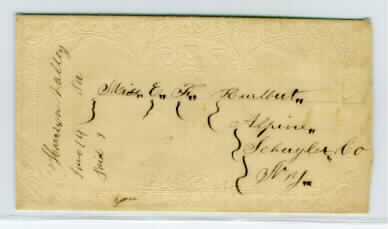 Harrison Valley
Pa
June 19
Paid 3
Miss,, E,, F,, Hurlburt,,
Alpine,,
Schuyler,, Co
N,, Y,,